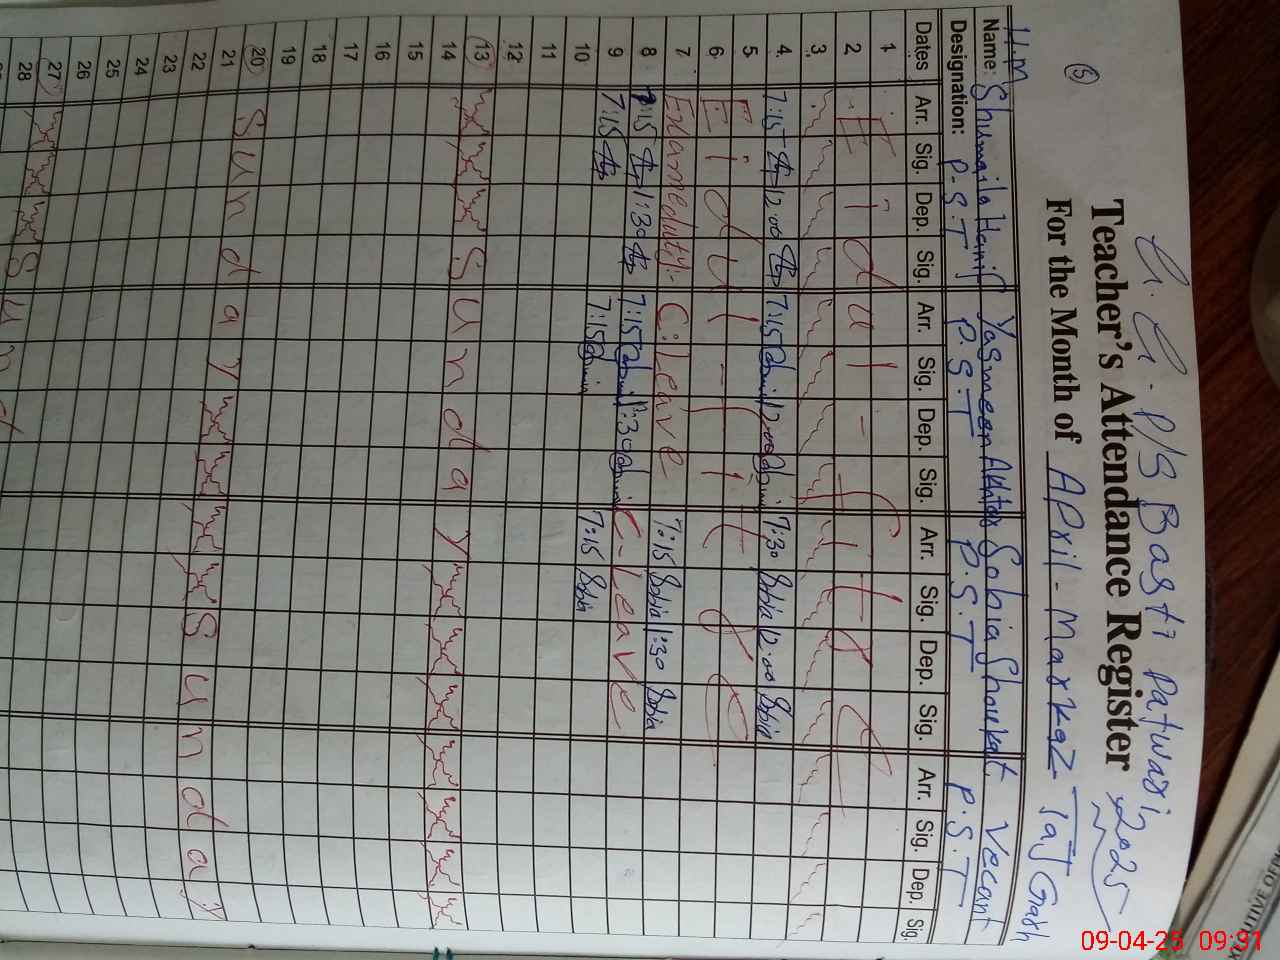 G. G. P/S Basti Patwari
Teacher's Attendance Register 2025
For the Month of April - Markaz Taj Garh
5
H.M
Name: Shumaila Hanif Yasmeen Akhtar Sobia Shoukat Vecant
Designation: P.S.T P.S.T P.S.T P.S.T
Dates Arr. Sig. Dep. Sig. Arr. Sig. Dep. Sig. Arr. Sig. Dep. Sig. Arr. Sig. Dep. Sig.
1 Eidul-fitr
2
3
4 7:15 12:00 7:15 12:00 7:30 Sobia 12:00 Sobia
5 Eidul-fitr
6
7 Exam eduty:- C:Leave 7:15 Sobia 1:30 Sobia
8 7:15 1:30 7:15 1:30 C-Leave
9 7:15 7:15 7:15 Sobia
10
11
12
13 Sunday
14
15
16
17
18
19
20 Sunday Sunday
21
22
23
24
25
26
27 Sund
28
EXECUTIVE OFFI
09-04-25 09:31